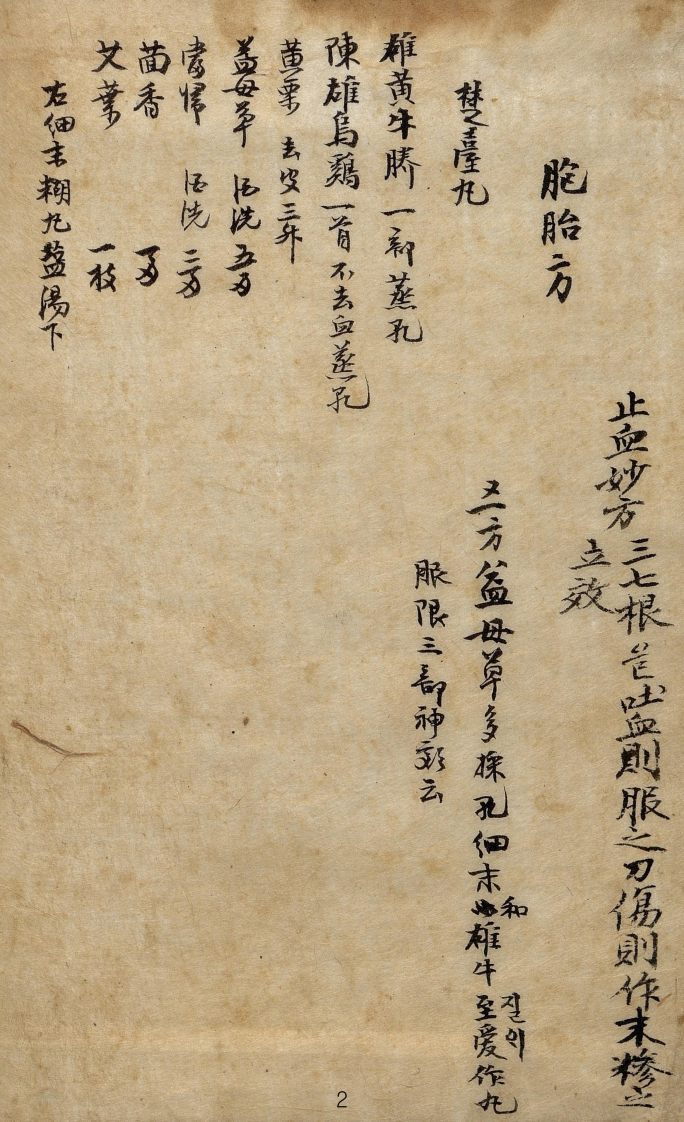 止血妙方 三七根 吐血則服之刀傷則作末糝之
立效
胞胎方
又一方益母草多採乾細末和雄牛至愛作丸
질이
服限三部神效云
梵臺丸
雄黃牛勝一部蒸乾
陳雄烏鷄一首不去血蒸乾
黃栗 去皮三升
益母草 酒洗五刄
當歸 酒洗二刄
茴香 一刄
艾葉 一枝
右細末糊丸盐湯下
2